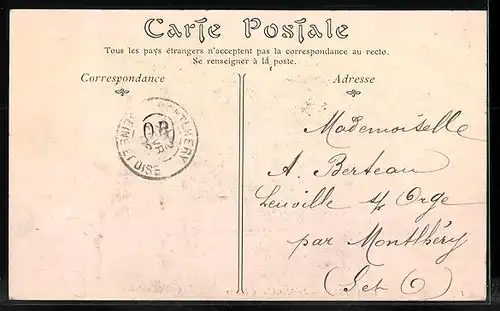 Carte Postale
Tous les pays étrangers n'acceptent pas la correspondance au recto.
Se renseigner à la poste.
Correspondance
Adresse
MONTLHERY
OR
SEINE ET OISE
Mademoiselle
A. Berteau
Leuville s/ Orge
par Montlhéry
(S et O)